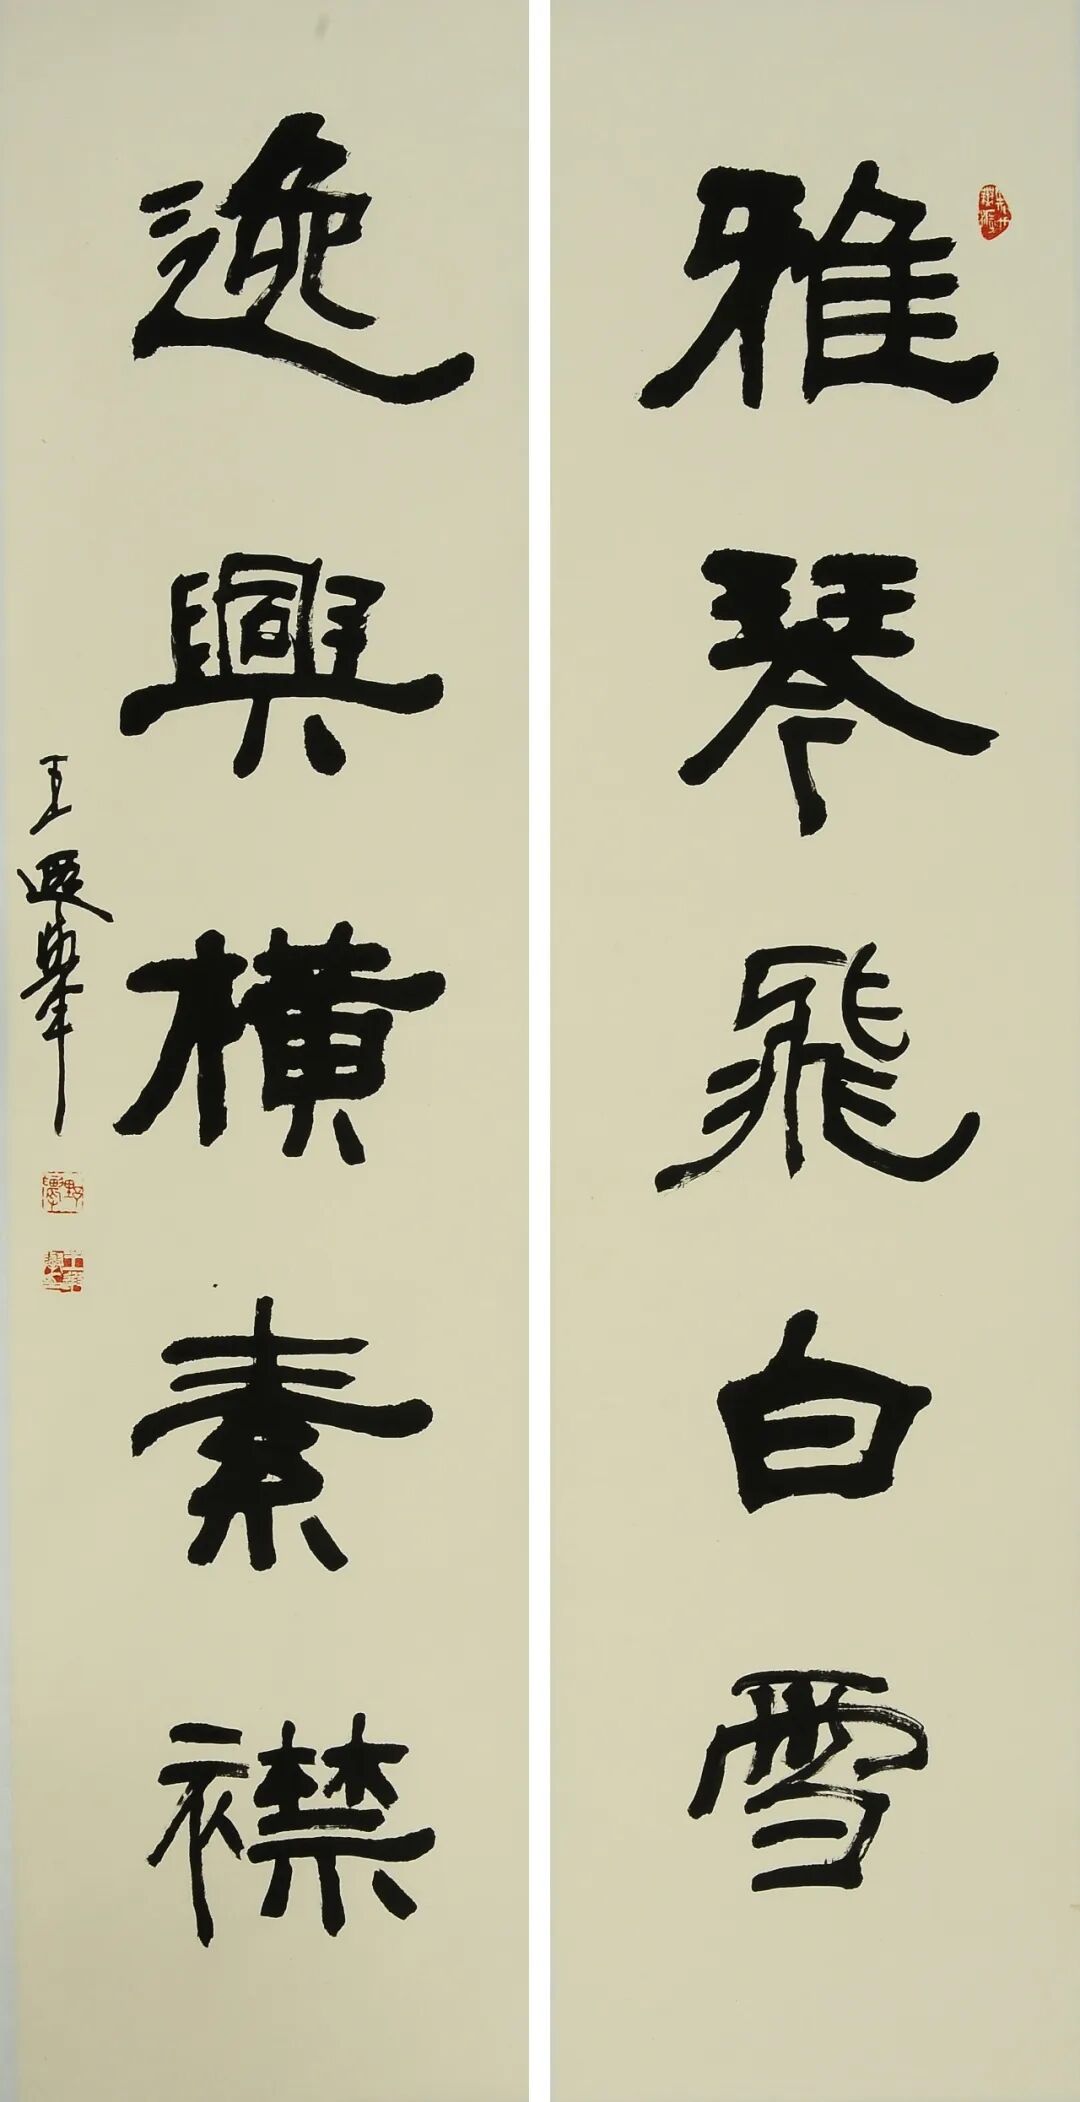 雅琴飛白雪
逸興橫素襟
王遐舉